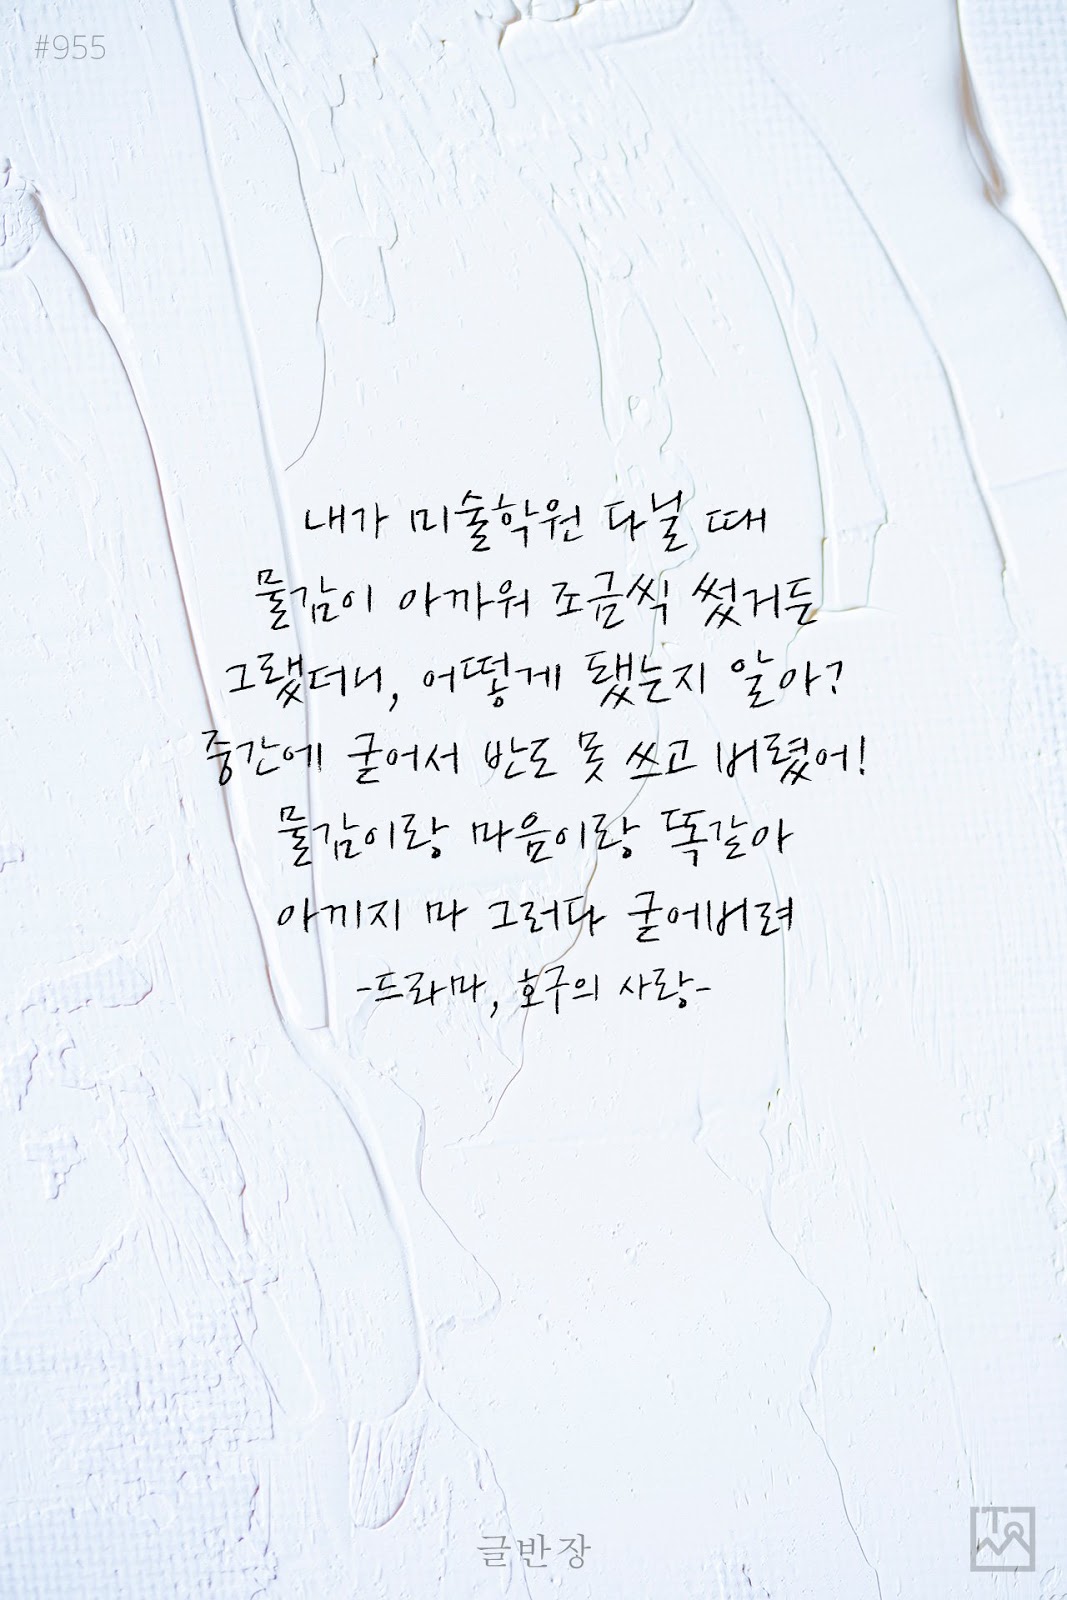 #955
내가 미술학원 다닐 때
물감이 아까워 조금씩 썼거든
그랬더니, 어떻게 됐는지 알아?
중간에 굳어서 반도 못 쓰고 버렸어!
물감이랑 마음이랑 똑같아
아끼지 마 그러다 굳어버려
-드라마, 호구의 사랑-
글반장